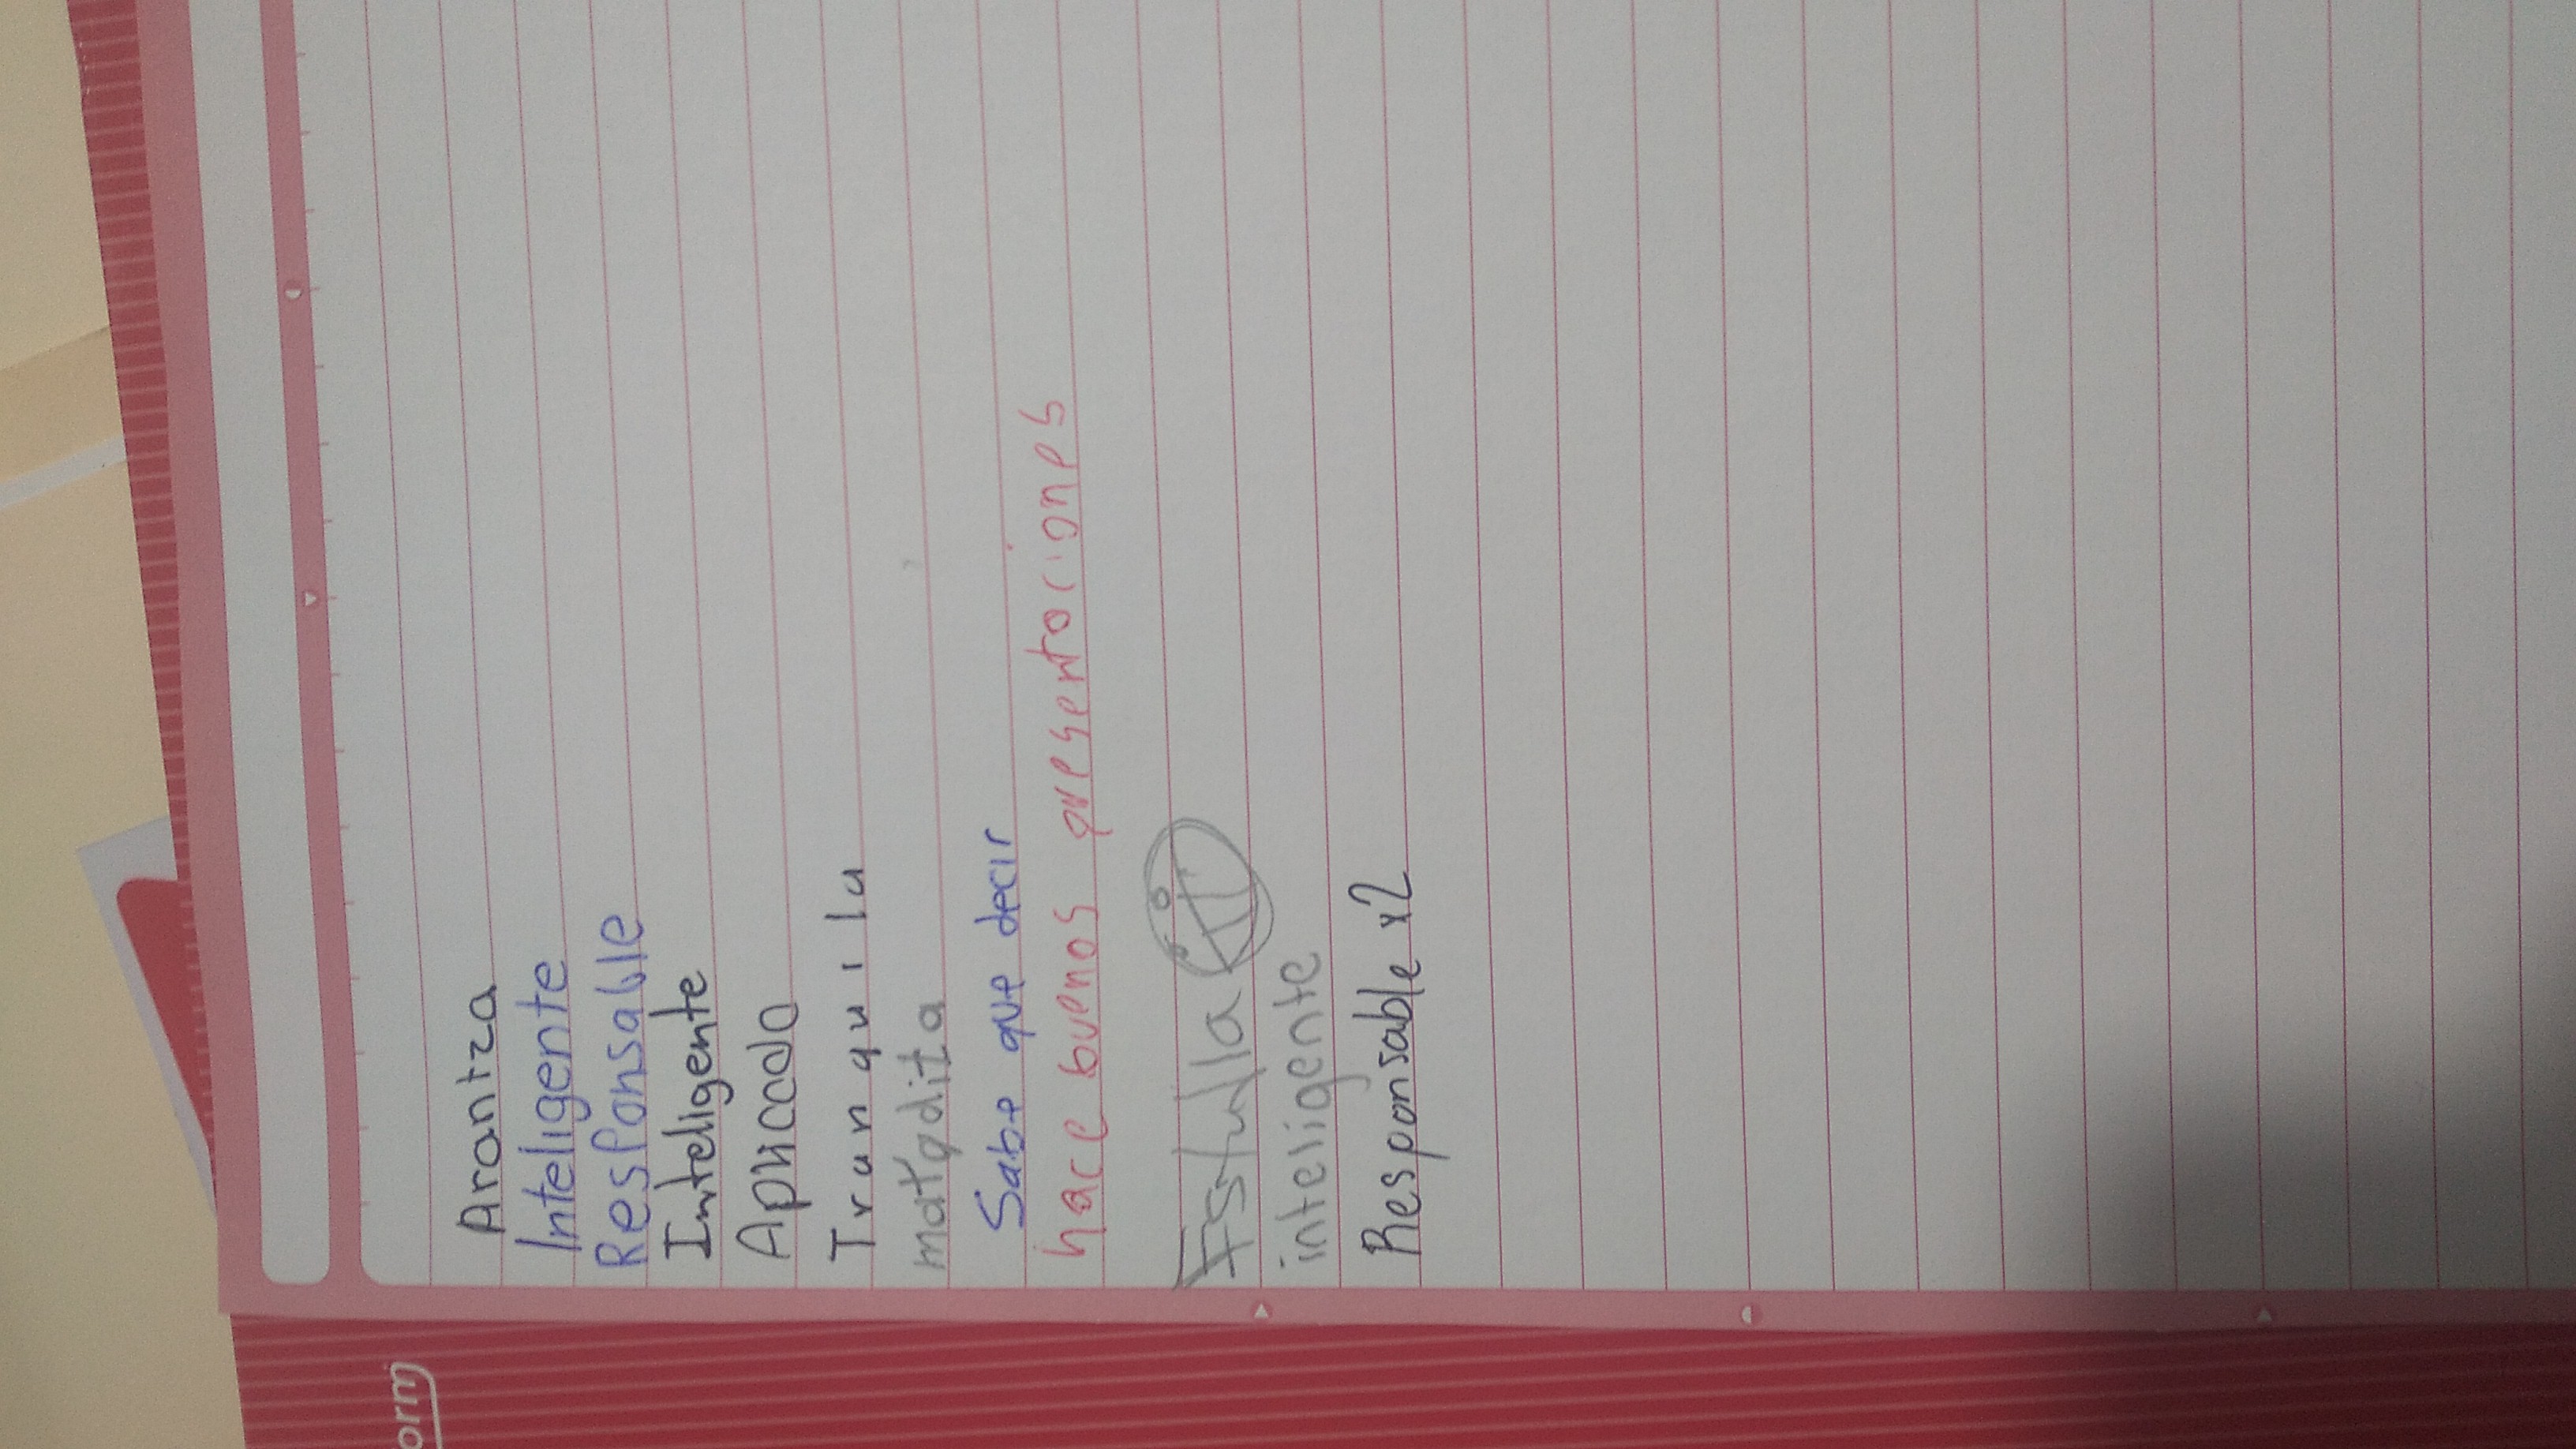 Arantza
Inteligente
Responsable
Inteligente
Aplicada
Tranquila
matadita
Sabe que decir
hace buenos presentaciones
inteligente
Responsable x2
orm